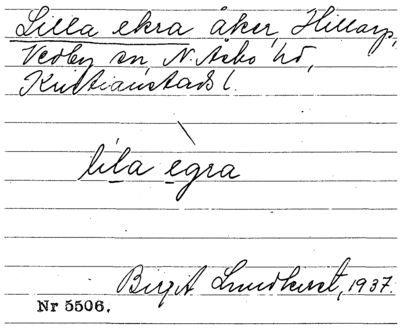 Lilla ekra åker, Hillarp,
Vedby sn N. Åsbo hd,
Kristianstads l.
lila egra
Birgit Lundkvist, 1937.
Nr 5506.